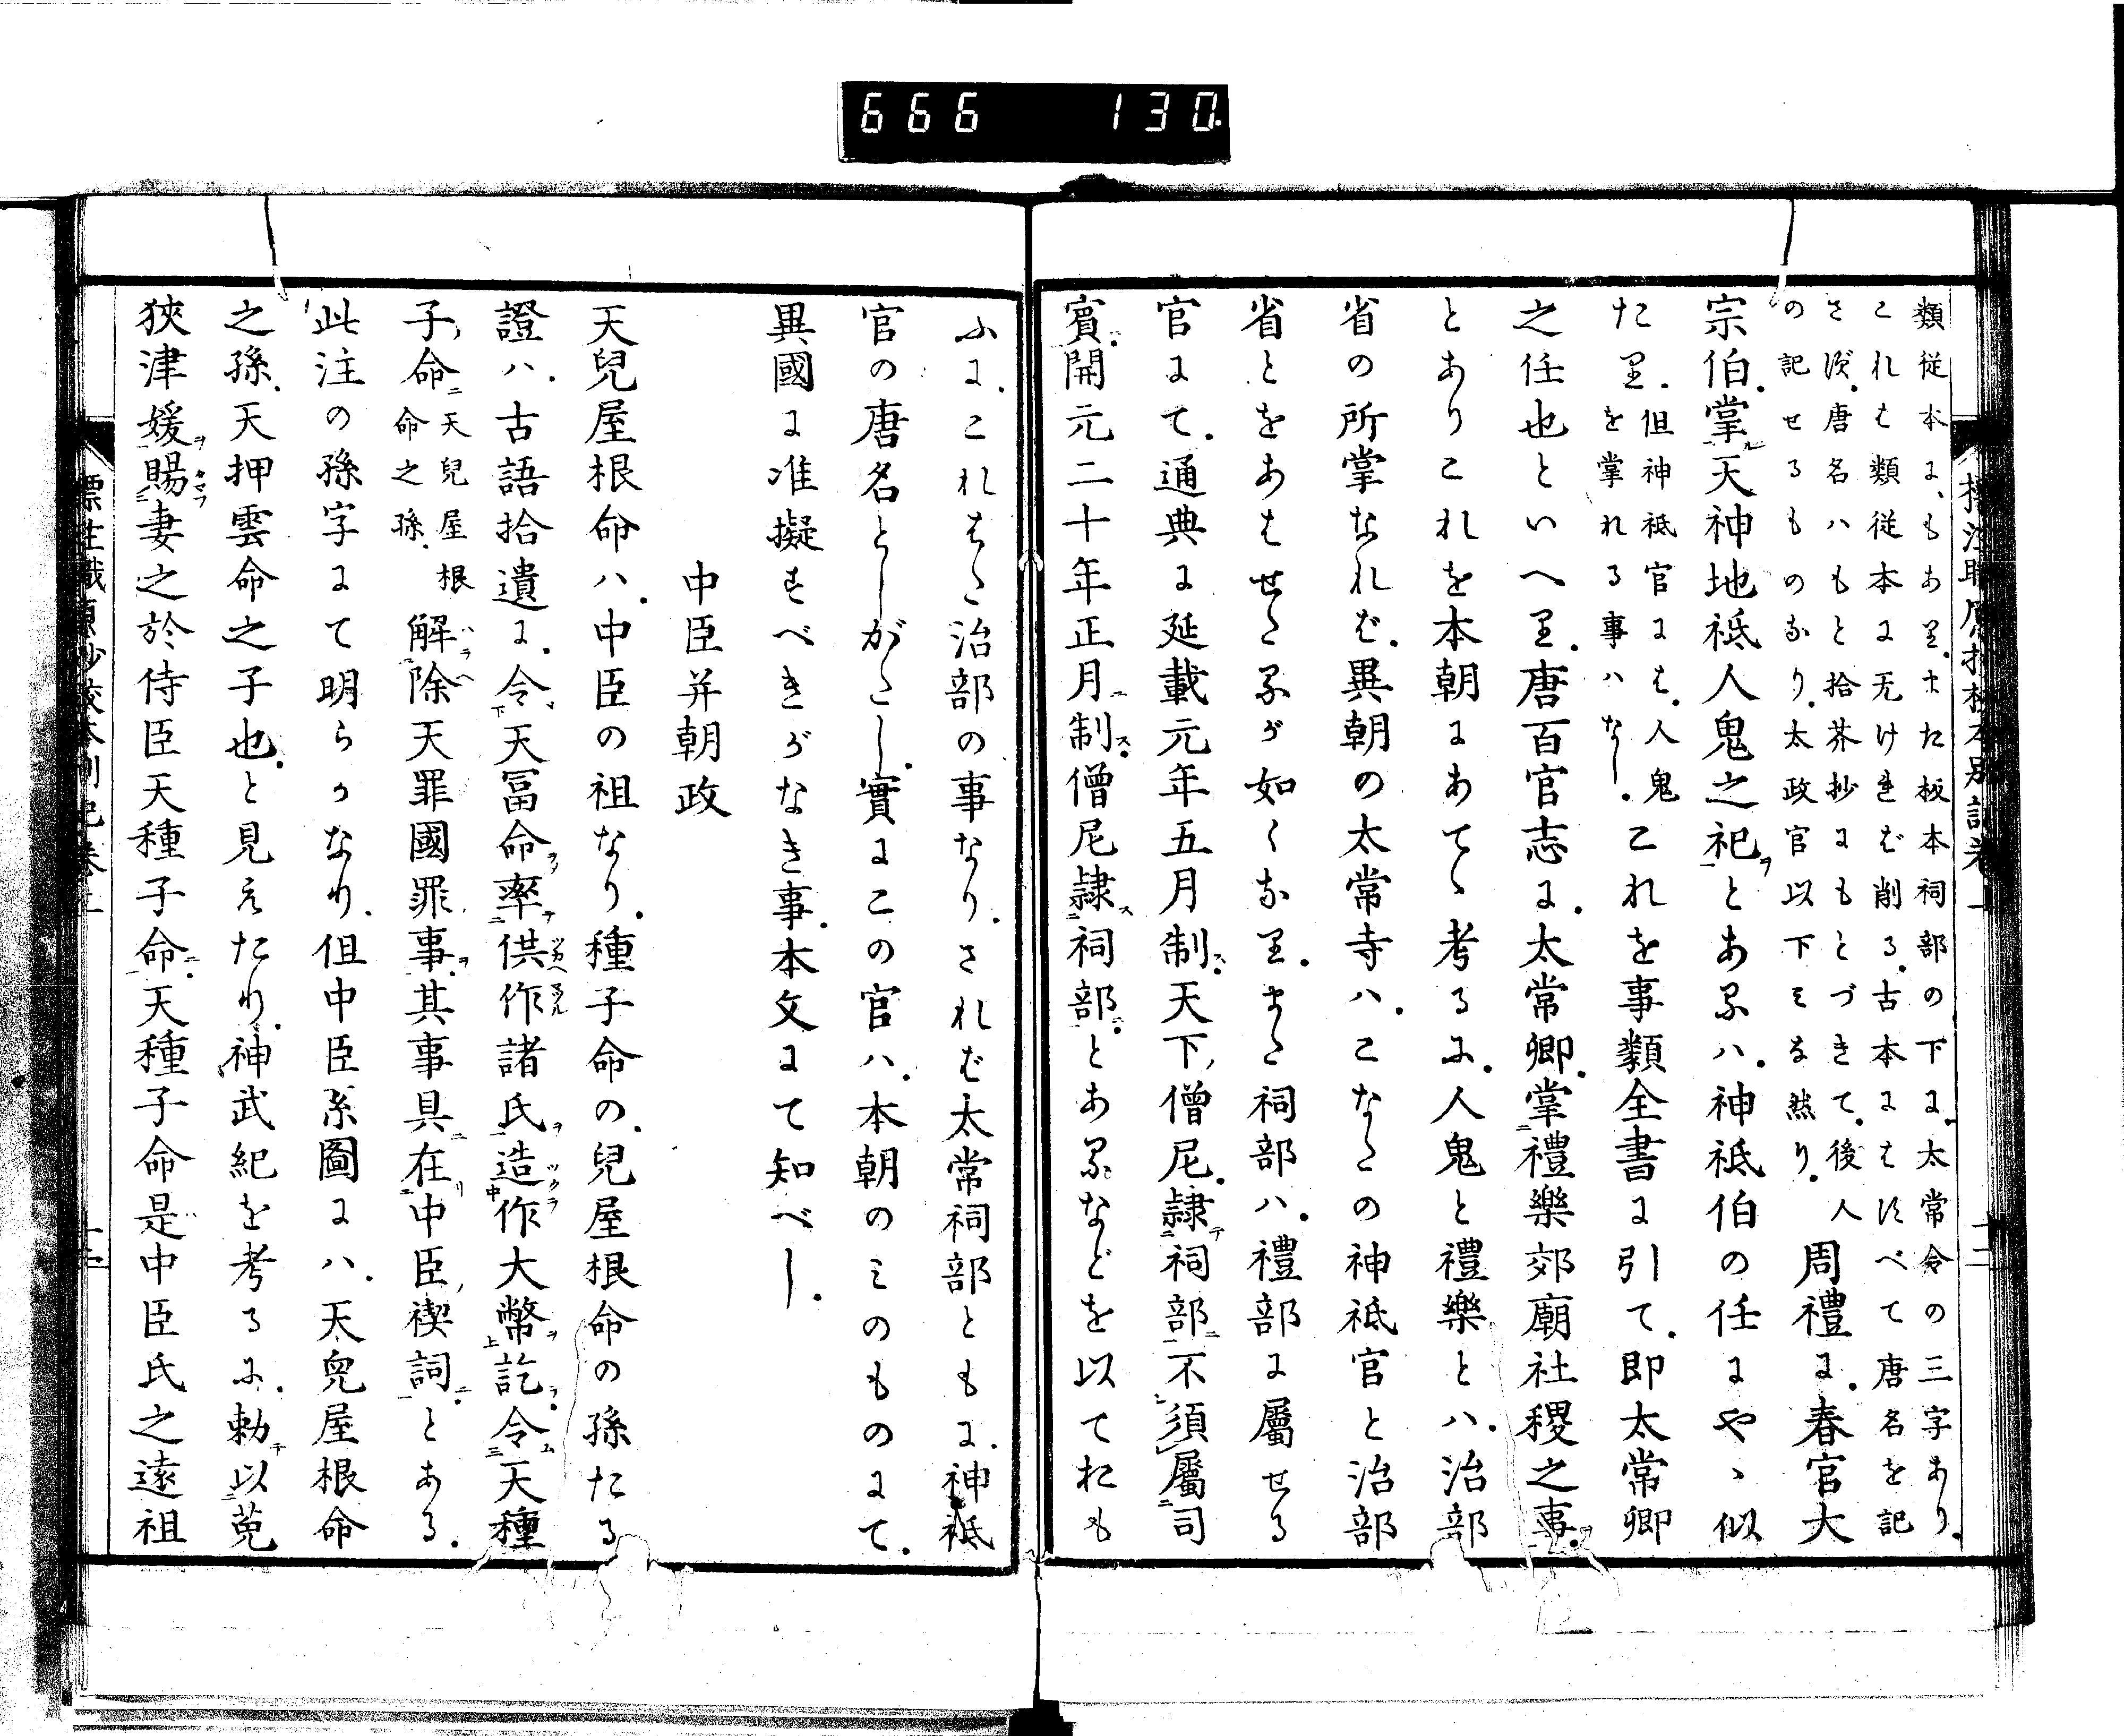 666 130
類従本に、もあり。また板本祠部の下に。太常令の三字あり。
これも類従本に无ければ削る。古本にはすべて唐名を記
さず。唐名ハもと拾芥抄にもとづきて。後人
の記せるものなり。太政官以下みな然り。周禮に。春官大
宗伯。掌天神地祇人鬼之祀とあるハ。神祇伯の任にやゝ似
たり。但神祇官にハ。人鬼
を掌れる事ハなし。これを事類全書に引て。即太常卿
之任也といへり。唐百官志に。太常卿。掌禮樂郊廟社稷之事。
とありこれを本朝にあてゝ考るに。人鬼と禮樂とハ。治部
省の所掌なれば。異朝の太常寺ハ。こなたの神祇官と治部
省とをあはせたるが如くなり。また祠部ハ。禮部に屬せる
官にて。通典に延載元年五月制。天下僧尼。隷祠部。不須屬司
賓。開元二十年正月制。僧尼隷祠部。とあるなどを以ておも
ふに。これまた治部の事なり。されば太常祠部ともに。神祇
官の唐名としがたし。實にこの官ハ。本朝のみのものにて。
異國に准擬すべきがなき事。本文にて知べし。
中臣并朝政
天兒屋根命ハ。中臣の祖なり。種子命の。兒屋根命の孫たる
證ハ。古語拾遺に。令天冨命率供作諸氏造作大幣訖。令天種
子命天兒屋根
命之孫。解除天罪國罪事。其事具在中臣禊詞。とある。
此注の孫字にて明らかなり。但中臣系圖にハ。天兒屋根命
之孫。天押雲命之子也。と見えたり。神武紀を考るに。勅以菟
狹津媛賜妻之於侍臣天種子命。天種子命是中臣氏之遠祖